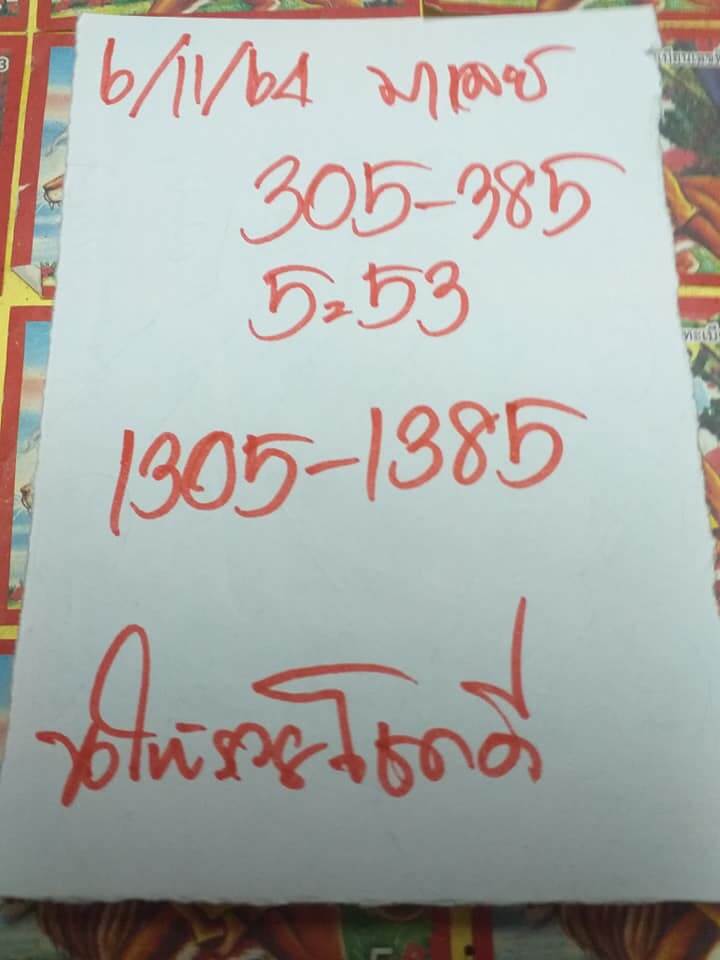 6/11/64 มาเลย์
305-385
5=53
1305-1385
ให้รวยโชคดี